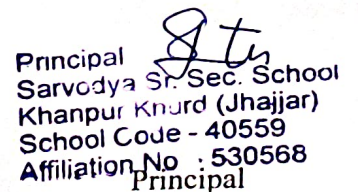 Principal
Sarvodya Sr. Sec. School
Khanpur Khurd (Jhajjar)
School Code - 40559
Affiliation No : 530568
Principal